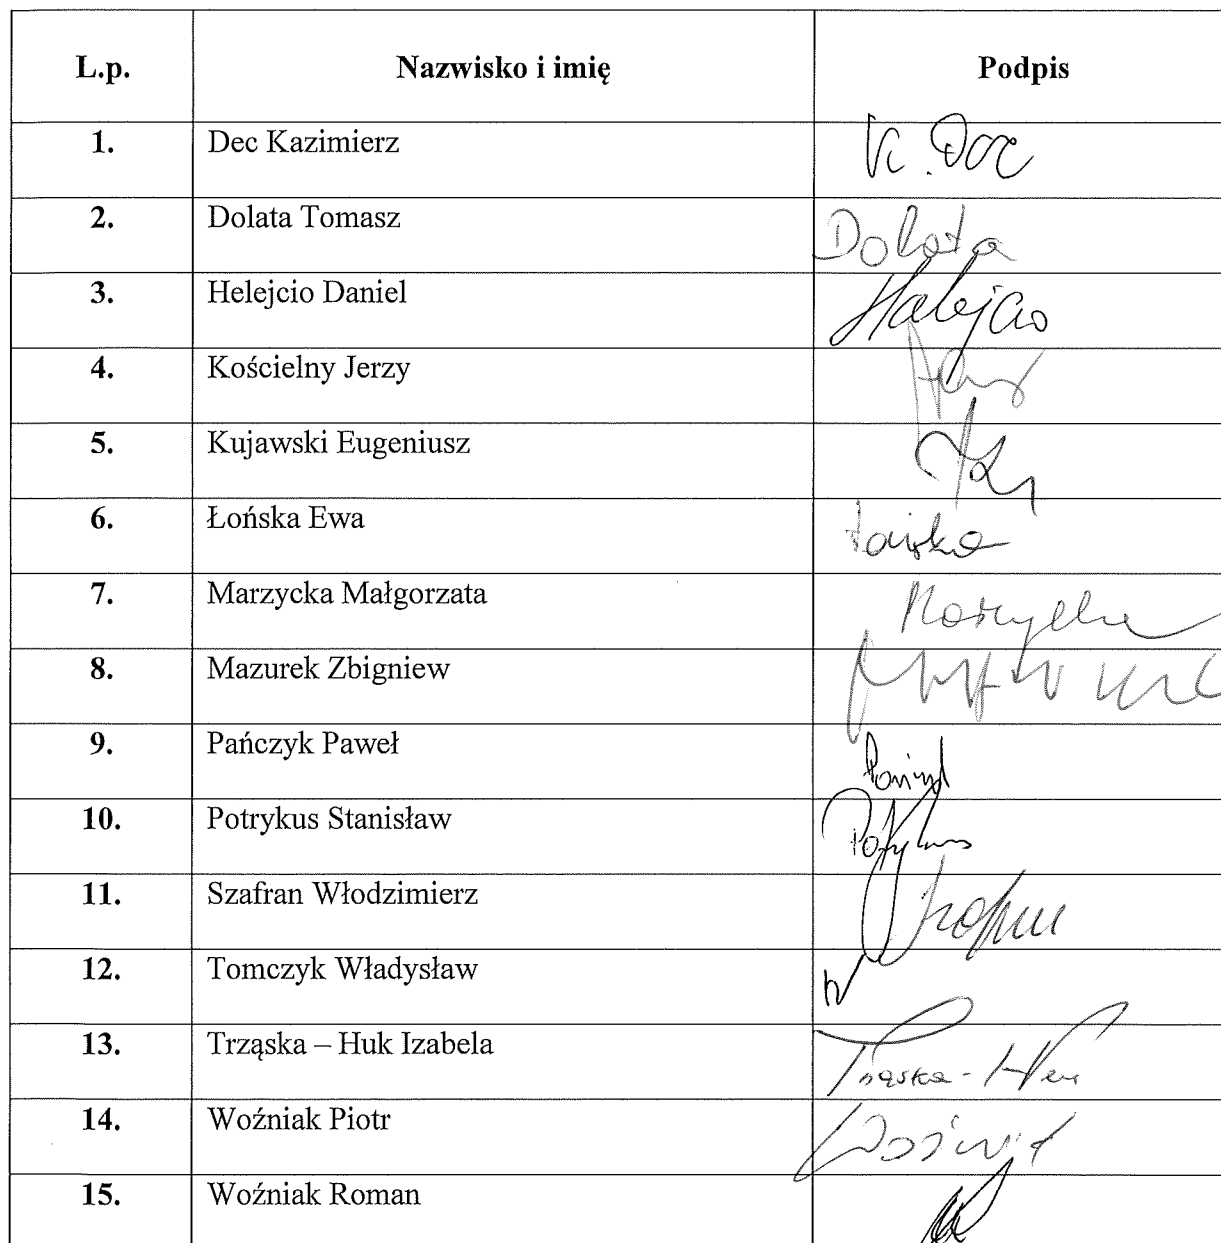 L.p. Nazwisko i imię Podpis
1. Dec Kazimierz K. Dec
2. Dolata Tomasz Dolata
3. Helejcio Daniel Helejcio
4. Kościelny Jerzy
5. Kujawski Eugeniusz
6. Łońska Ewa Łońska
7. Marzycka Małgorzata Marzycka
8. Mazurek Zbigniew
9. Pańczyk Paweł
10. Potrykus Stanisław Potrykus
11. Szafran Włodzimierz
12. Tomczyk Władysław
13. Trząska – Huk Izabela Trząska - Huk
14. Woźniak Piotr
15. Woźniak Roman